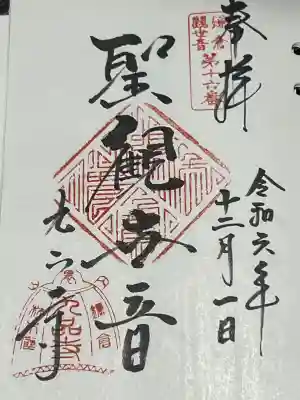 奉拝
鎌倉
観世音
第十六番
令和六年
十二月一日
聖観世音
九品寺
鎌倉